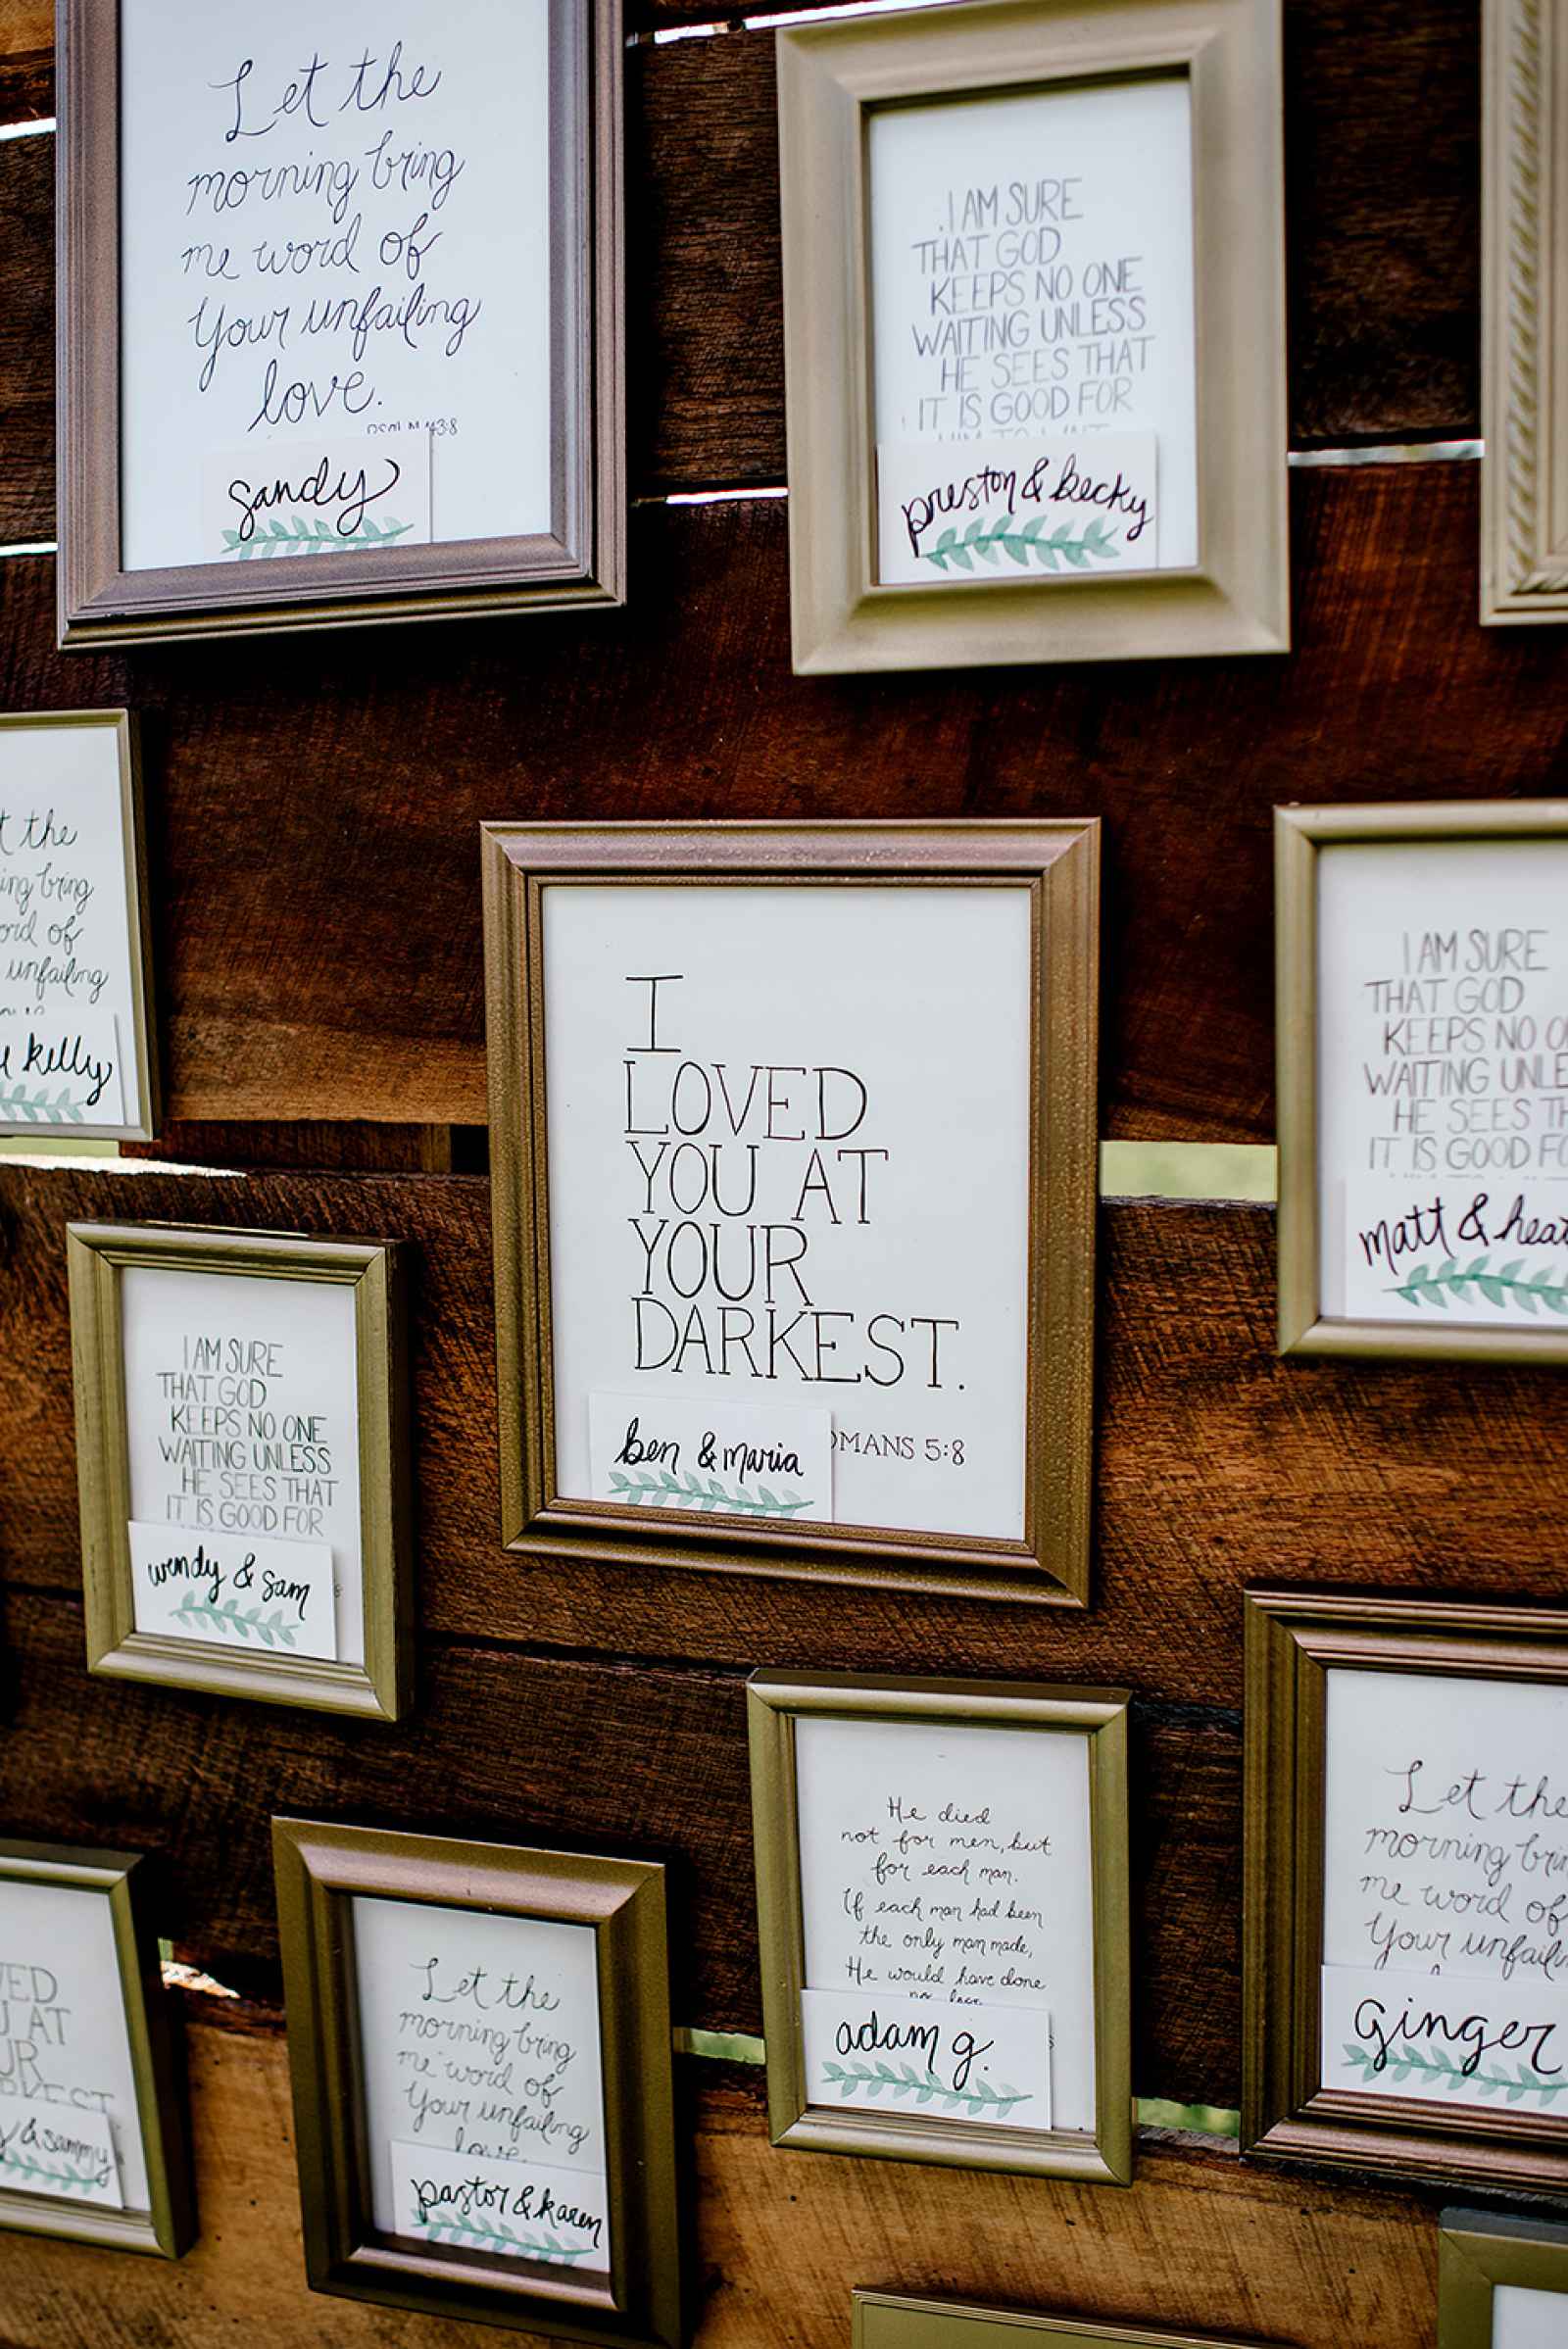 Let the
morning bring
me word of
Your unfailing
love.
PSALM 143:8
sandy
I AM SURE
THAT GOD
KEEPS NO ONE
WAITING UNLESS
HE SEES THAT
IT IS GOOD FOR
HIM TO WAIT
preston & becky
the
ing bring
ord of
unfailing
kelly
I
LOVED
YOU AT
YOUR
DARKEST.
OMANS 5:8
ben & maria
I AM SURE
THAT GOD
KEEPS NO O
WAITING UNLE
HE SEES TH
IT IS GOOD FO
matt & heat
I AM SURE
THAT GOD
KEEPS NO ONE
WAITING UNLESS
HE SEES THAT
IT IS GOOD FOR
wendy & sam
He died
not for men, but
for each man.
If each man had been
the only man made,
He would have done
no less.
adam g.
Let the
morning brin
me word of
Your unfail
ginger
VED
U AT
UR
RKEST
& sammy
Let the
morning bring
me word of
Your unfailing
love.
pastor & karen